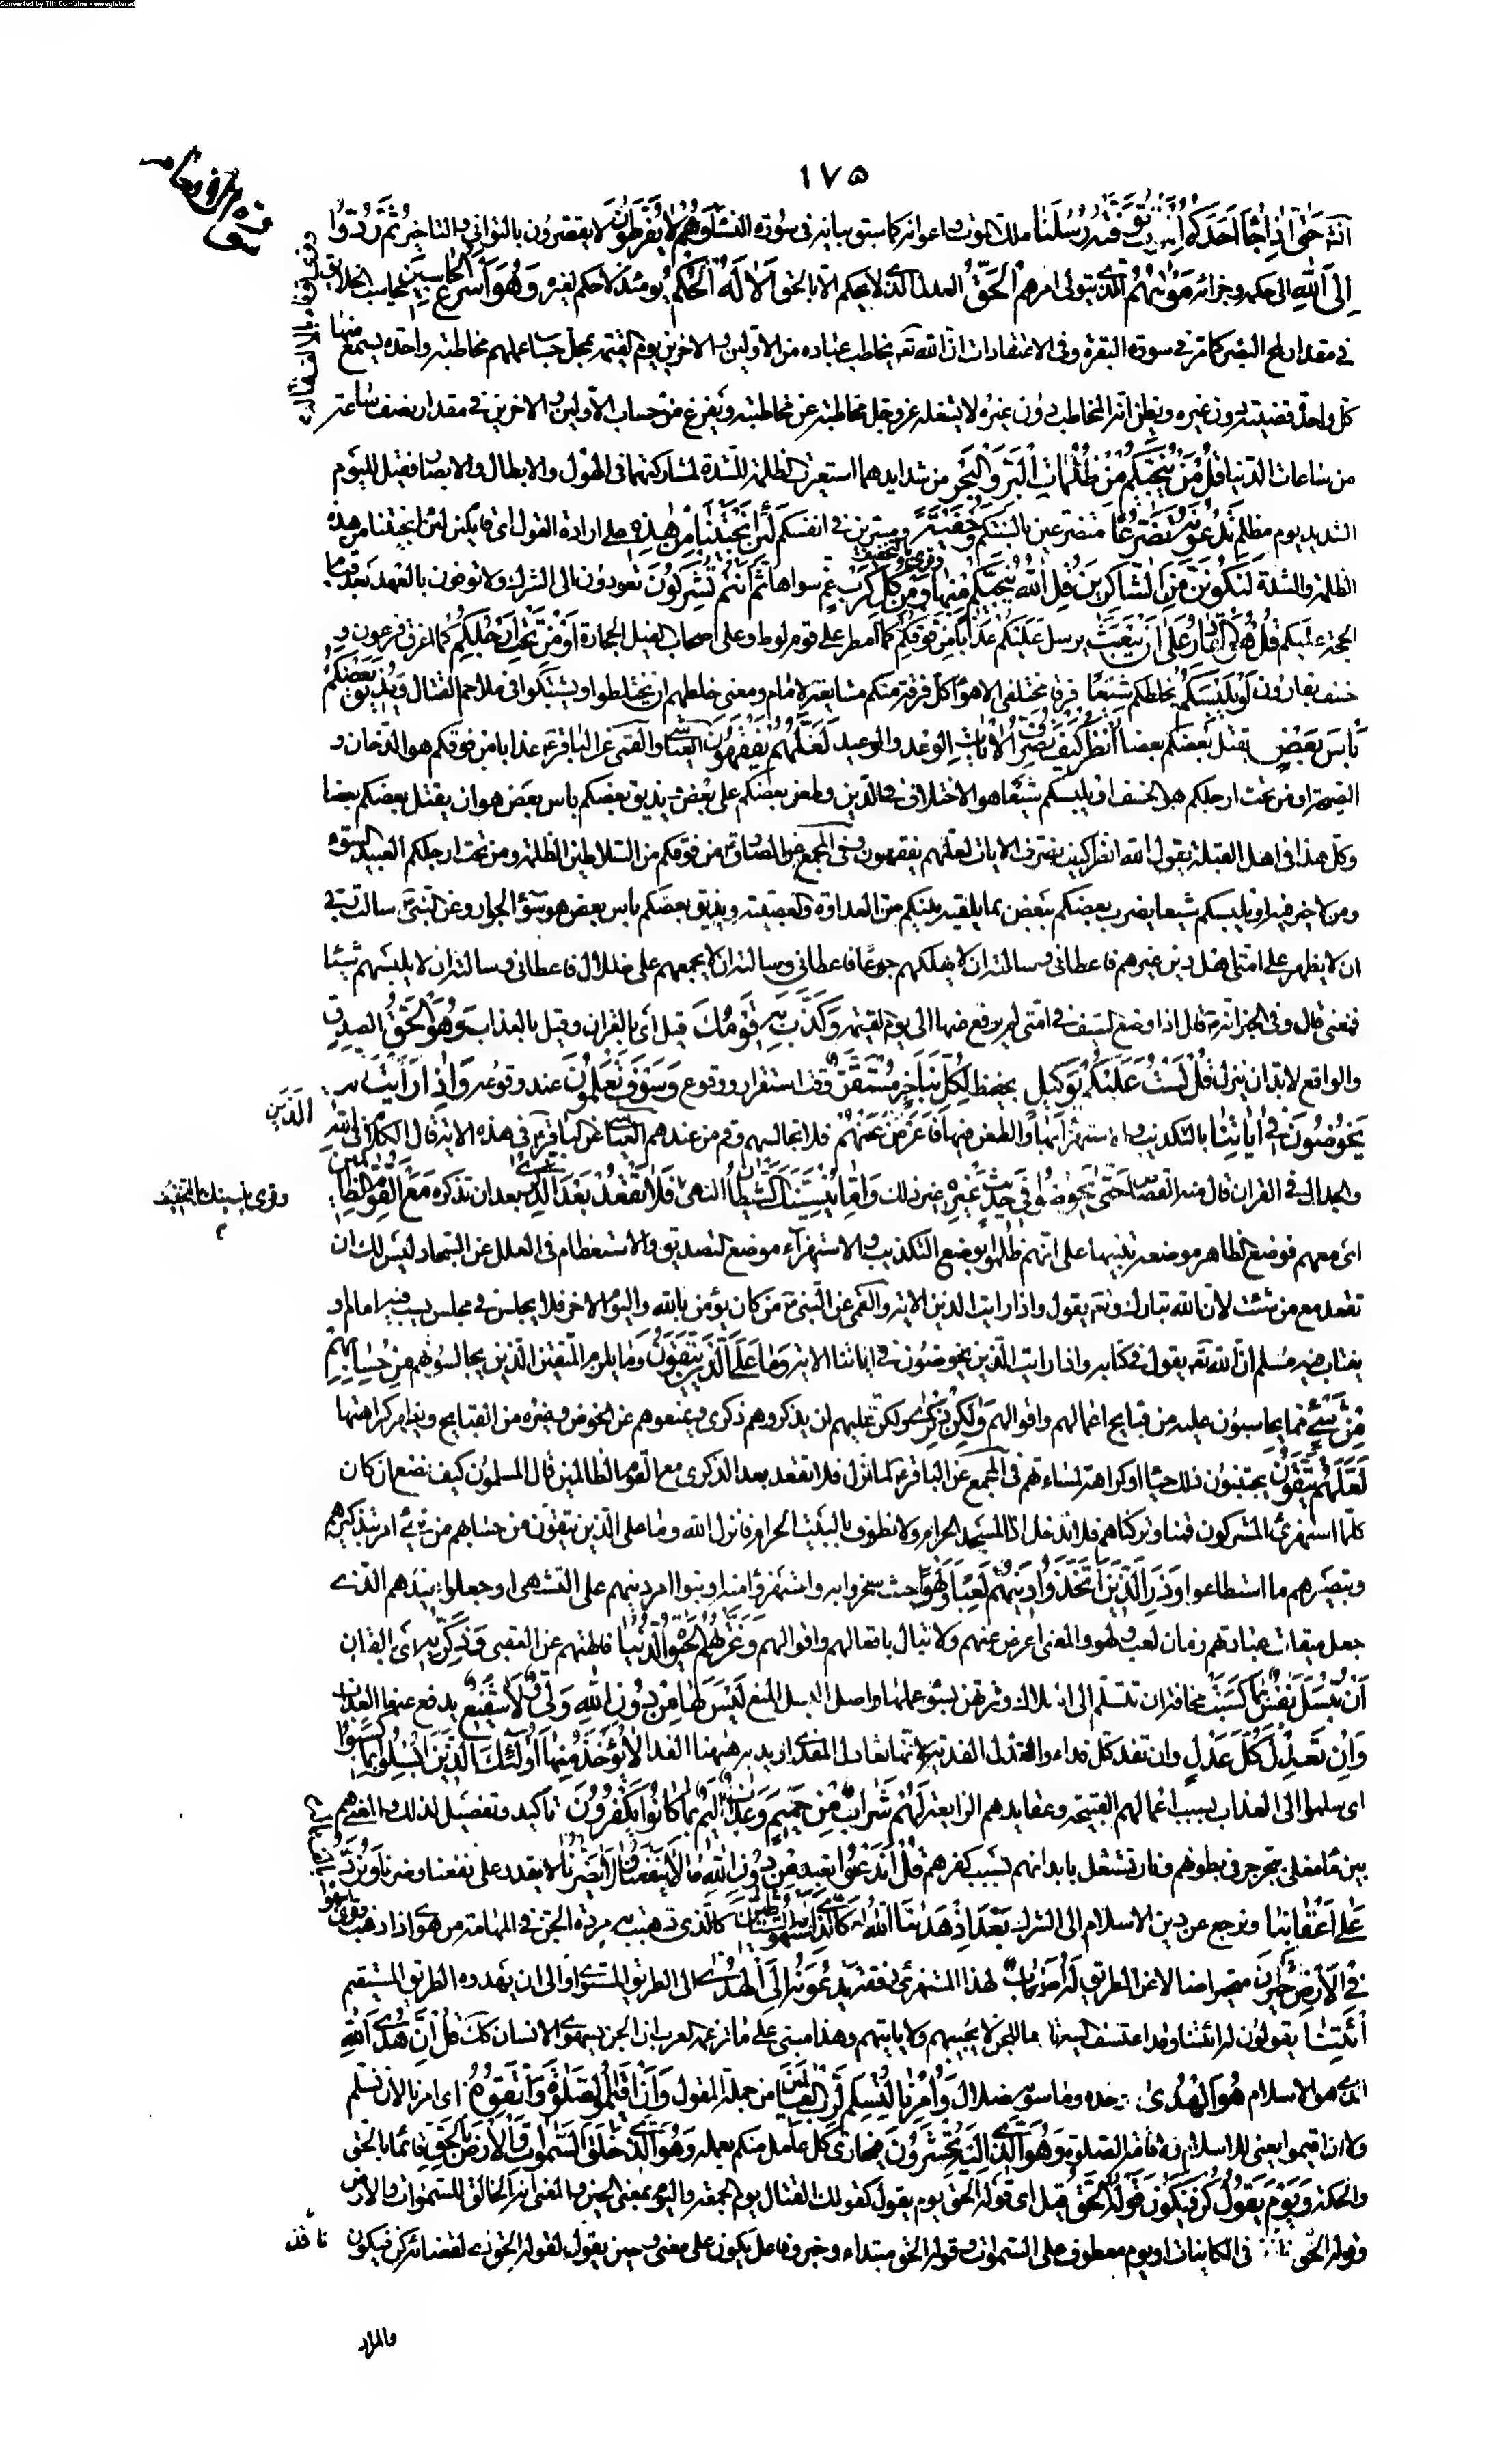 Converted by Tiff Combine - unregistered
١٧٥
سورة الأنعام
حتى اذا جاء احدكم الموت توفته رسلنا ملك الموت واعوانه كما سبق بيانه فى سورة النساء وهم لا يفرطون لا يقصرون بالتوانى والتاخير ثم ردوا
الى الله الى حكمه وجزائه موليهم الذى يتولى امرهم الحق العدل الذى لا يحكم الا بالحق الا له الحكم يومئذ لا حكم لغيره وهو اسرع الحاسبين يحاسب الخلايق
فى مقدار لمح البصر كما مر فى سورة البقرة وفى الاعتقادات ان الله تعه يخاطب عباده من الاولين والاخرين يوم القيمة بمجمل حساب عملهم مخاطبة واحدة يسمع منها
كل واحد قضيته دون غيره ويظن انه المخاطب دون غيره لا يشغله عز وجل مخاطبة عن مخاطبة ويفرغ من حساب الاولين والاخرين فى مقدار نصف ساعة
من ساعات الدنيا قل من ينجيكم من ظلمات البر والبحر من شدايدهما استعيرت الظلمة للشدة لمشاركتهما فى الهول والابطال والابصار فقيل لليوم
الشديد يوم مظلم تدعونه تضرعا متضرعين بالسنتكم وخفية ومسرين فى انفسكم لئن انجيتنا من هذه على ارادة القول اى قايلين لئن انجيتنا من هذه
الظلمة والشدة لنكونن من الشاكرين قل الله ينجيكم منها وقرئ بالتخفيف ومن كل كرب غم سواها ثم انتم تشركون تعودون الى الشرك ولا توفون بالعهد بعد قيام
الحجة عليكم قل هو القادر على ان يبعث يرسل عليكم عذابا من فوقكم كما امطر على قوم لوط وعلى اصحاب الفيل الحجارة او من تحت ارجلكم كما اغرق فرعون و
خسف بقارون او يلبسكم يخلطكم شيعا فرقا مختلفى الاهواء كل فرقة منكم مشايعة لامام ومعنى خلطهم ان يختلطوا ويشتبكوا فى ملاحم القتال ويذيق بعضكم
باس بعض يقتل بعضكم بعضا انظر كيف نصرف الايات بالوعد والوعيد لعلهم يفقهون العياشى والقمى عن الباقر ع عذابا من فوقكم هو الدخان و
الصيحة او من تحت ارجلكم هو الخسف او يلبسكم شيعا هو الاختلاف فى الدين وطعن بعضكم على بعض ويذيق بعضكم باس بعض هو ان يقتل بعضكم بعضا
وكل هذا فى اهل القبلة يقول الله انظر كيف نصرف الايات لعلهم يفقهون وفى المجمع عن الصادق ع من فوقكم من السلاطين الظلمة ومن تحت ارجلكم العبيد السوء
ومن لا خير فيه او يلبسكم شيعا يضرب بعضكم ببعض بما يلقيه بينكم من العداوة والعصبية ويذيق بعضكم بأس بعض هو سوء الجوار وعن النبى ص سالت ربى
ان لا يظهر على امتى اهل دين غيرهم فاعطانى وسالته ان لا يهلكهم جوعا فاعطانى وسالته ان لا يجمعهم على ضلال فاعطانى وسالته ان لا يلبسهم شيعا
فمنعنى قال وفى الخبر انه ص قال اذا وضع السيف فى امتى لم يرفع عنها الى يوم القيمة وكذب به قومك قيل اى بالقران وقيل بالعذاب وهو الحق الصدق
والواقع لا بد ان ينزل قل لست عليكم بوكيل بحفيظ لكل نبا خبر مستقر وقت استقرار ووقوع وسوف تعلمون عند وقوعه واذا رايت الذين
يخوضون فى اياتنا بالتكذيب والاستهزاء بها والطعن فيها فاعرض عنهم فلا تجالسهم وقم من عندهم العياشى عن الباقر ع فى هذه الاية قال الكلام فى الله
والجدال فى القران قال منه القصاص حتى يخوضوا فى حديث غيره غير ذلك واما ينسينك الشيطان النهى فلا تقعد بعد الذكرى بعد ان تذكره مع القوم الظالمين
وقرئ ينسينك بالتخفيف
اى معهم فوضع الظاهر موضعه تنبيها على انهم ظلموا بوضع التكذيب والاستهزاء موضع التصديق والاستعظام فى العلل عن السجاد ليس لك ان
تقعد مع من شئت لان الله تبارك وتعه يقول واذا رايت الذين الاية والقمى عن النبى ص من كان يؤمن بالله واليوم الاخر فلا يجلس فى مجلس يسب فيه امام او
يغتاب فيه مسلم ان الله تعه يقول فى كتابه واذا رايت الذين يخوضون فى اياتنا الاية وما على الذين يتقون وما يلزم المتقين الذين يجالسونهم من حسابهم
من شئ مما يحاسبون عليه من قبايح اعمالهم واقوالهم ولكن ذكرى ولكن عليهم ان يذكروهم ذكرى ويمنعوهم عن الخوض وغيره من القبايح ويظهر كراهتها
لعلهم يتقون يجتنبون ذلك حياء او كراهة لمساءتهم فى المجمع عن الباقر ع لما نزل فلا تقعد بعد الذكرى مع القوم الظالمين قال المسلمون كيف نصنع ان كان
كلما استهزئ المشركون قمنا وتركناهم فلا ندخل اذا المسجد الحرام ولا نطوف بالبيت الحرام فانزل الله وما على الذين يتقون من حسابهم من شئ امر بتذكيرهم
وتبصيرهم ما استطاعوا وذر الذين اتخذوا دينهم لعبا ولهوا حيث سخروا به واستهزؤا منه او بنوا امر دينهم على التشهى او جعلوا عيدهم الذى
جعل ميقات عبادتهم زمان لعب ولهو والمعنى اعرض عنهم ولا تبال بافعالهم واقوالهم وغرتهم الحيوة الدنيا فالهتهم عن العقبى وذكر به اى بالقران
ان تبسل نفس بما كسبت مخافة ان تسلم الى الهلاك وترتهن بسوء عملها واصل البسل المنع ليس لها من دون الله ولى ولا شفيع يدفع عنها العذاب
وان تعدل كل عدل وان تفد كل فداء والعدل الفدية لانها تعادل المفدى اريد به هيهنا الفداء لا يؤخذ منها اولئك الذين ابسلوا بما كسبوا
اى سلموا الى العذاب بسبب اعمالهم القبيحة وعقايدهم الزايغة لهم شراب من حميم وعذاب اليم بما كانوا يكفرون تاكيد وتفصيل لذلك والمعنى هم
بين ماء مغلى يتجرجر فى بطونهم ونار تشتعل بابدانهم بسبب كفرهم قل اندعوا انعبد من دون الله ما لا ينفعنا ولا يضرنا لا يقدر على نفعنا وضرنا ونرد
على اعقابنا ونرجع عن دين الاسلام الى الشرك بعد اذ هدينا الله كالذى استهوته الشياطين كالذى ذهبت به مردة الجن فى المهامة من هوى اذا ذهب
فى الارض حيران متحيرا ضالا عن الطريق له اصحاب لهذا المستهوى رفقة يدعونه الى الهدى الى الطريق المستوى او الى ان يهدوه الطريق المستقيم
ائتنا يقولون له ائتنا وقد اعتسف التيه تابعا للجن لا يجيبهم ولا ياتيهم وهذا مبنى على ما تزعمه العرب ان الجن يستهوى الانسان كذلك قل ان هدى الله
الذى هو الاسلام هو الهدى وحده وما سويه ضلال وامرنا لنسلم لرب العالمين من جملة المقول وان اقيموا الصلوة واتقوه اى امرنا لان نسلم
ولان اقيموا يعنى للاسلام ولاقامة الصلوة وهو الذى اليه تحشرون فيجازى كل عامل منكم بعمله وهو الذى خلق السموات والارض بالحق قائما بالحق
والحكمة ويوم يقول كن فيكون قوله الحق قيل اى قوله الحق يوم يقول كقولك القتال يوم الجمعة واليوم بمعنى الحين والمعنى انه الخالق للسموات والارض
وقوله الحق نافذ فى الكاينات او يوم معطوف على السموات وقوله الحق مبتداء وخبر او فاعل يكون على معنى وحين يقول لقوله الحق اى لقضائه كن فيكون
والمراد